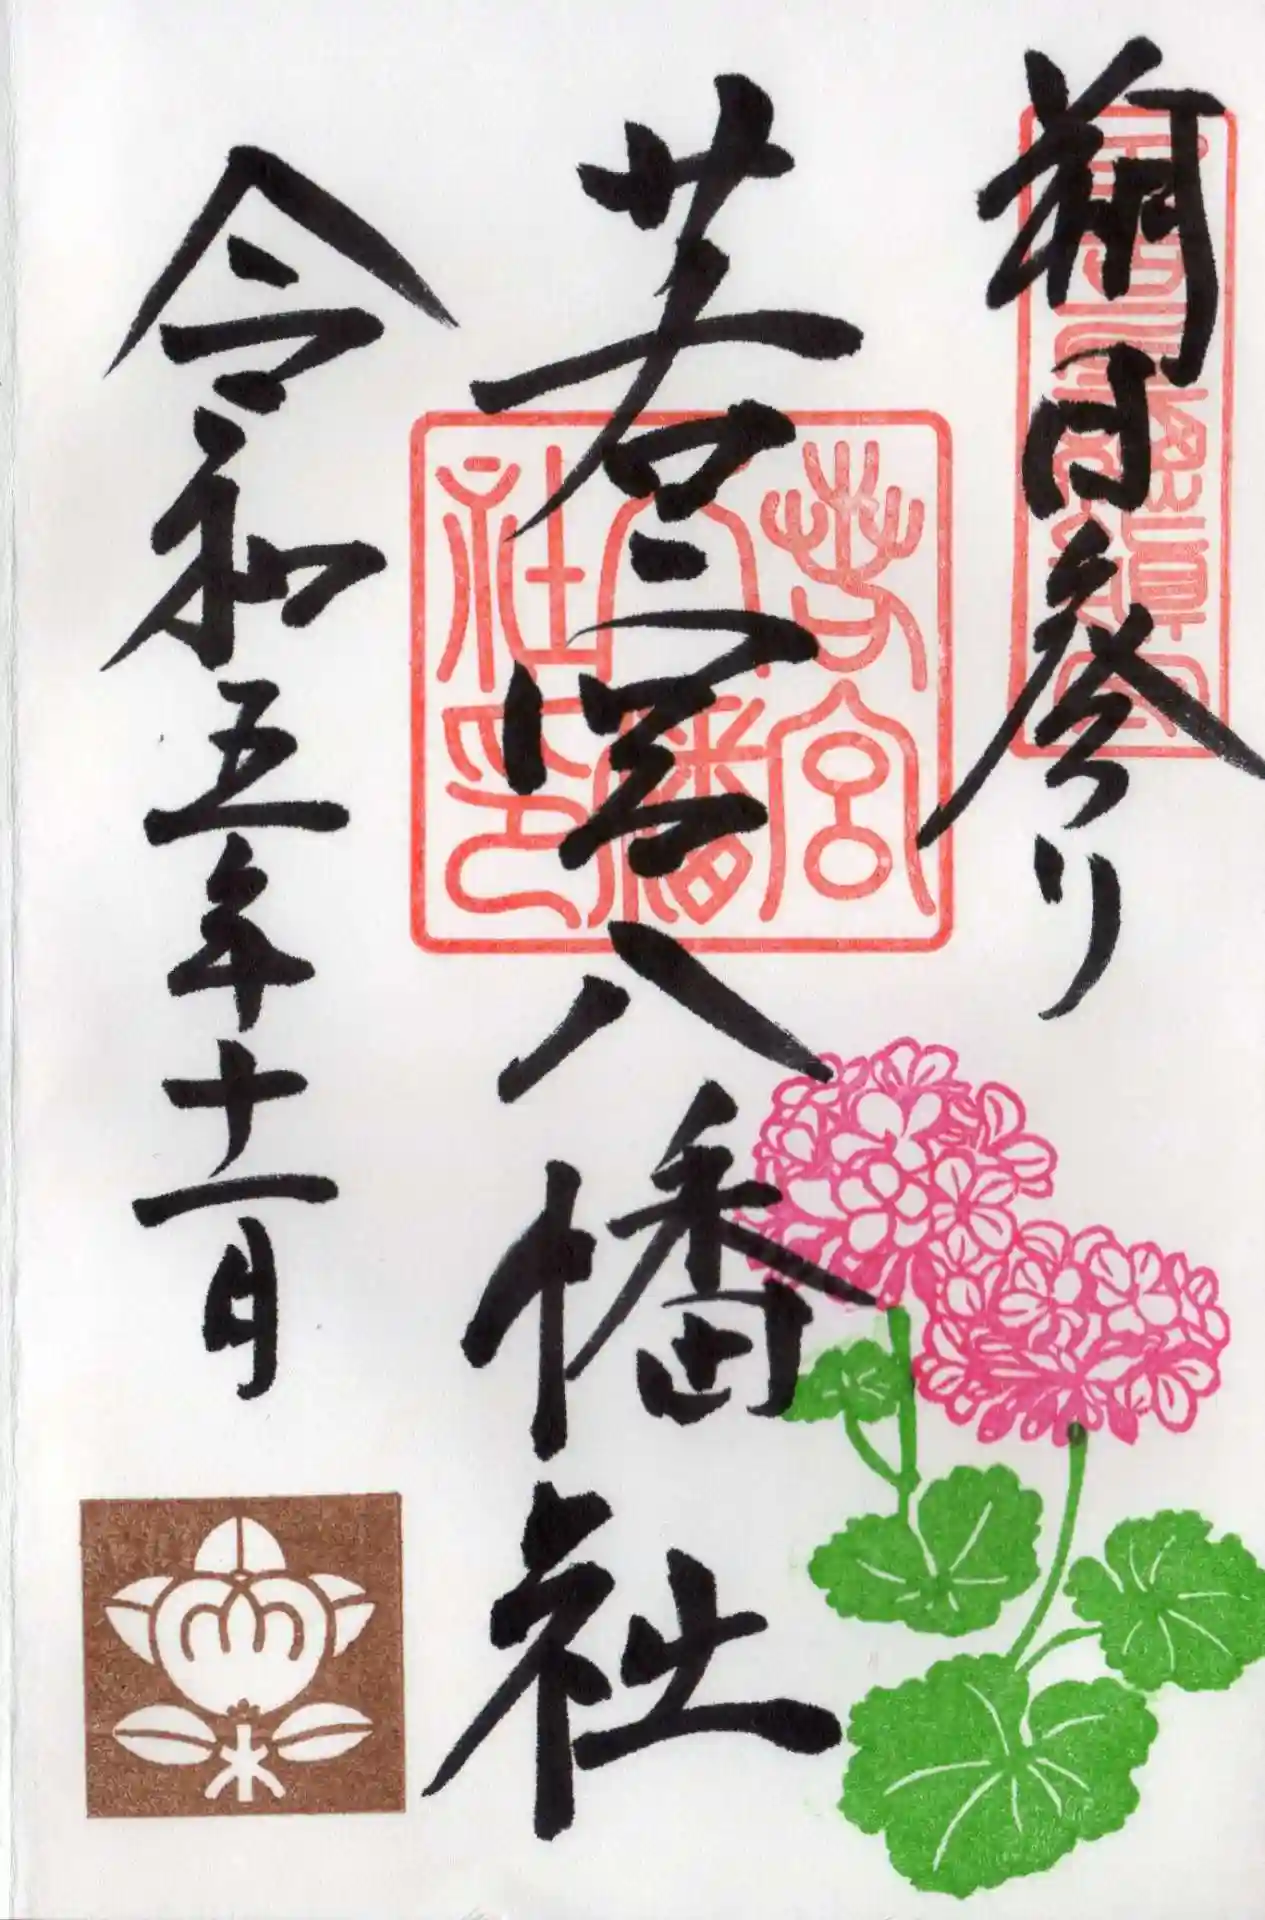 朔日参り
若宮八幡社
若宮
八幡
社印
令和五年十一月